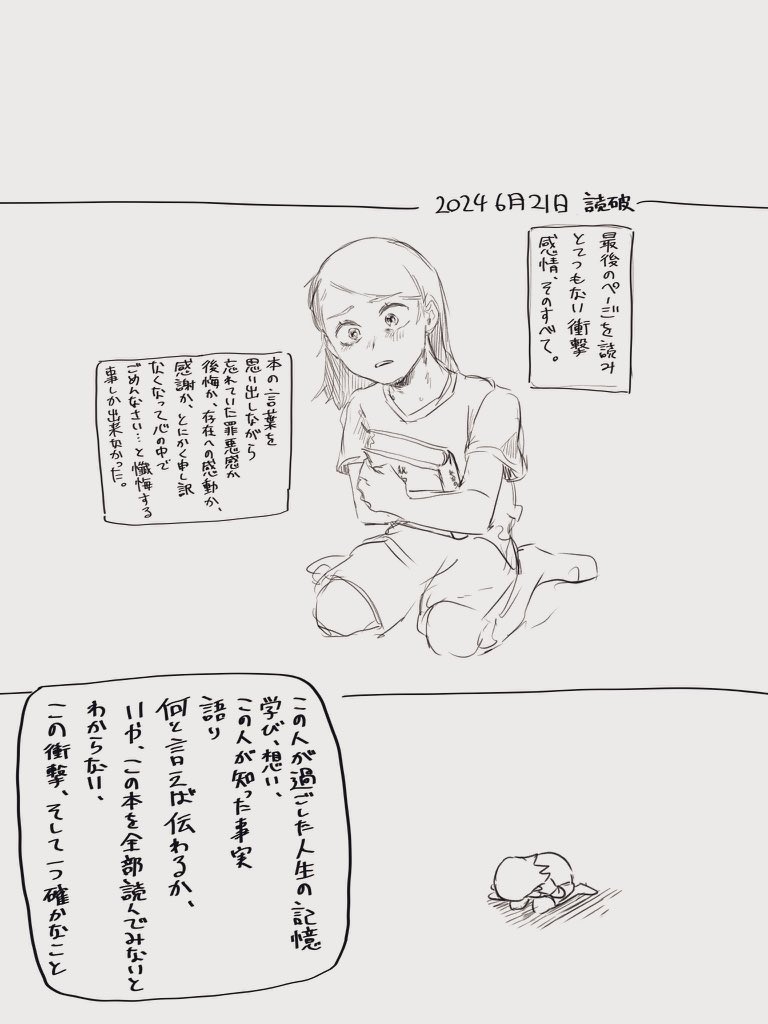 2024 6月21日 読破
最後のページを読み
とてつもない衝撃
感情、そのすべて。
本の言葉を
思い出しながら
忘れていた罪悪感か
後悔か、存在への感動か、
感謝か、とにかく申し訳
なくなって心の中で
ごめんなさい…と懺悔する
事しか出来なかった。
この人が過ごした人生の記憶
学び、想い、
この人が知った事実
語り
何と言えば伝わるか、
いや、この本を全部読んでみないと
わからない、
この衝撃、そして一つ確かなこと